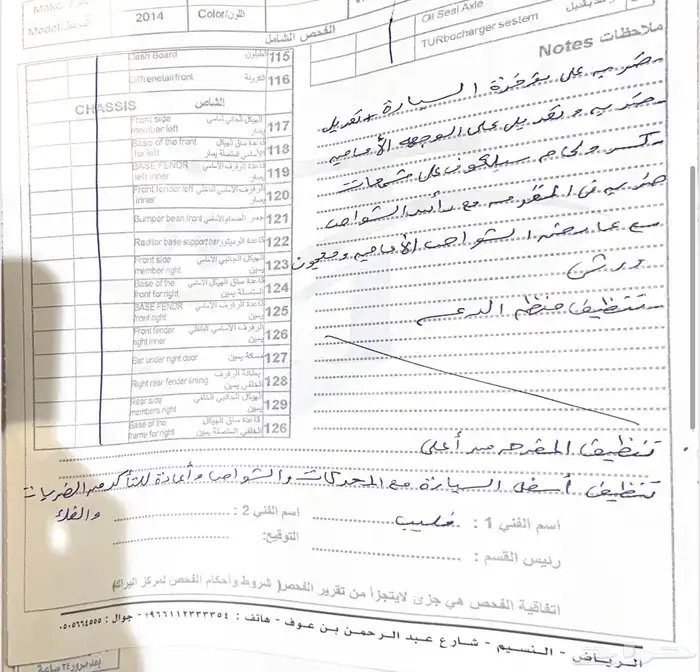 Make
Model الموديل
2014
Color/اللون
Oil Seal Axle
TURbocharger sestem
الفحص الشامل
ملاحظات Notes
115 Dash Board الطبلون
116 Diffrenetail front
CHASSIS الشاص
117 Front side member left الهيكل الجانبي أمامي يسار
118 Base of the front for left قاعدة ساق الهيكل الأمامي المتصلة يسار
119 BASE FENDR left inner قاعدة الرفرف الأمامي يسار
120 Front fender left inner الرفرف الأمامي الداخلي يسار
121 Bumper bean front جسر الصدام الأمامي
122 Raditor base support bar قاعدة الرديتور
123 Front side member right الهيكل الجانبي الأمامي يمين
124 Base of the front for right قاعدة ساق الهيكل الأمامي المتصلة يمين
125 BASE FENDR front right قاعدة الرفرف الأمامي يمين
126 Front fender right inner الرفرف الأمامي الداخلي يمين
127 Bar under right door مسكة يمين
128 Right rear fender lining بطانة الرفرف الخلفي يمين
129 Rear side members right الهيكل الجانبي الخلفي يمين
126 Base of the frame for right قاعدة ساق الهيكل الخلفي المتصلة يمين
ـ ضربه على مؤخرة السيارة + تعديل
ـ ضربه وتعديل على الوجهه الأماميه
ـ كسر ولحام سيلكون على شمعات
ضربه في المقدمه مع رأس الشواصي
مع الشواصي الأماميه ومعجون
ورش
ـ تنظيف منطقه الدعم
تنظيف المقرحه من أعلى
تنظيف أسفل السيارة مع المحركات والشواصي وأعادة للتأكد من الضربات والفك
اسم الفني 1 : اسم الفني 2 :
رئيس القسم : التوقيع:
اتفاقية الفحص هي جزى لايتجزأ من تقرير الفحص( شروط وأحكام الفحص لمركز البراك)
الرياض - النسيم - شارع عبد الرحمن بن عوف - هاتف : ٩٦٦١١٢٣٣٣٣٥٤+ - جوال : ٠٥٠٥٦٦٤٥٥٥